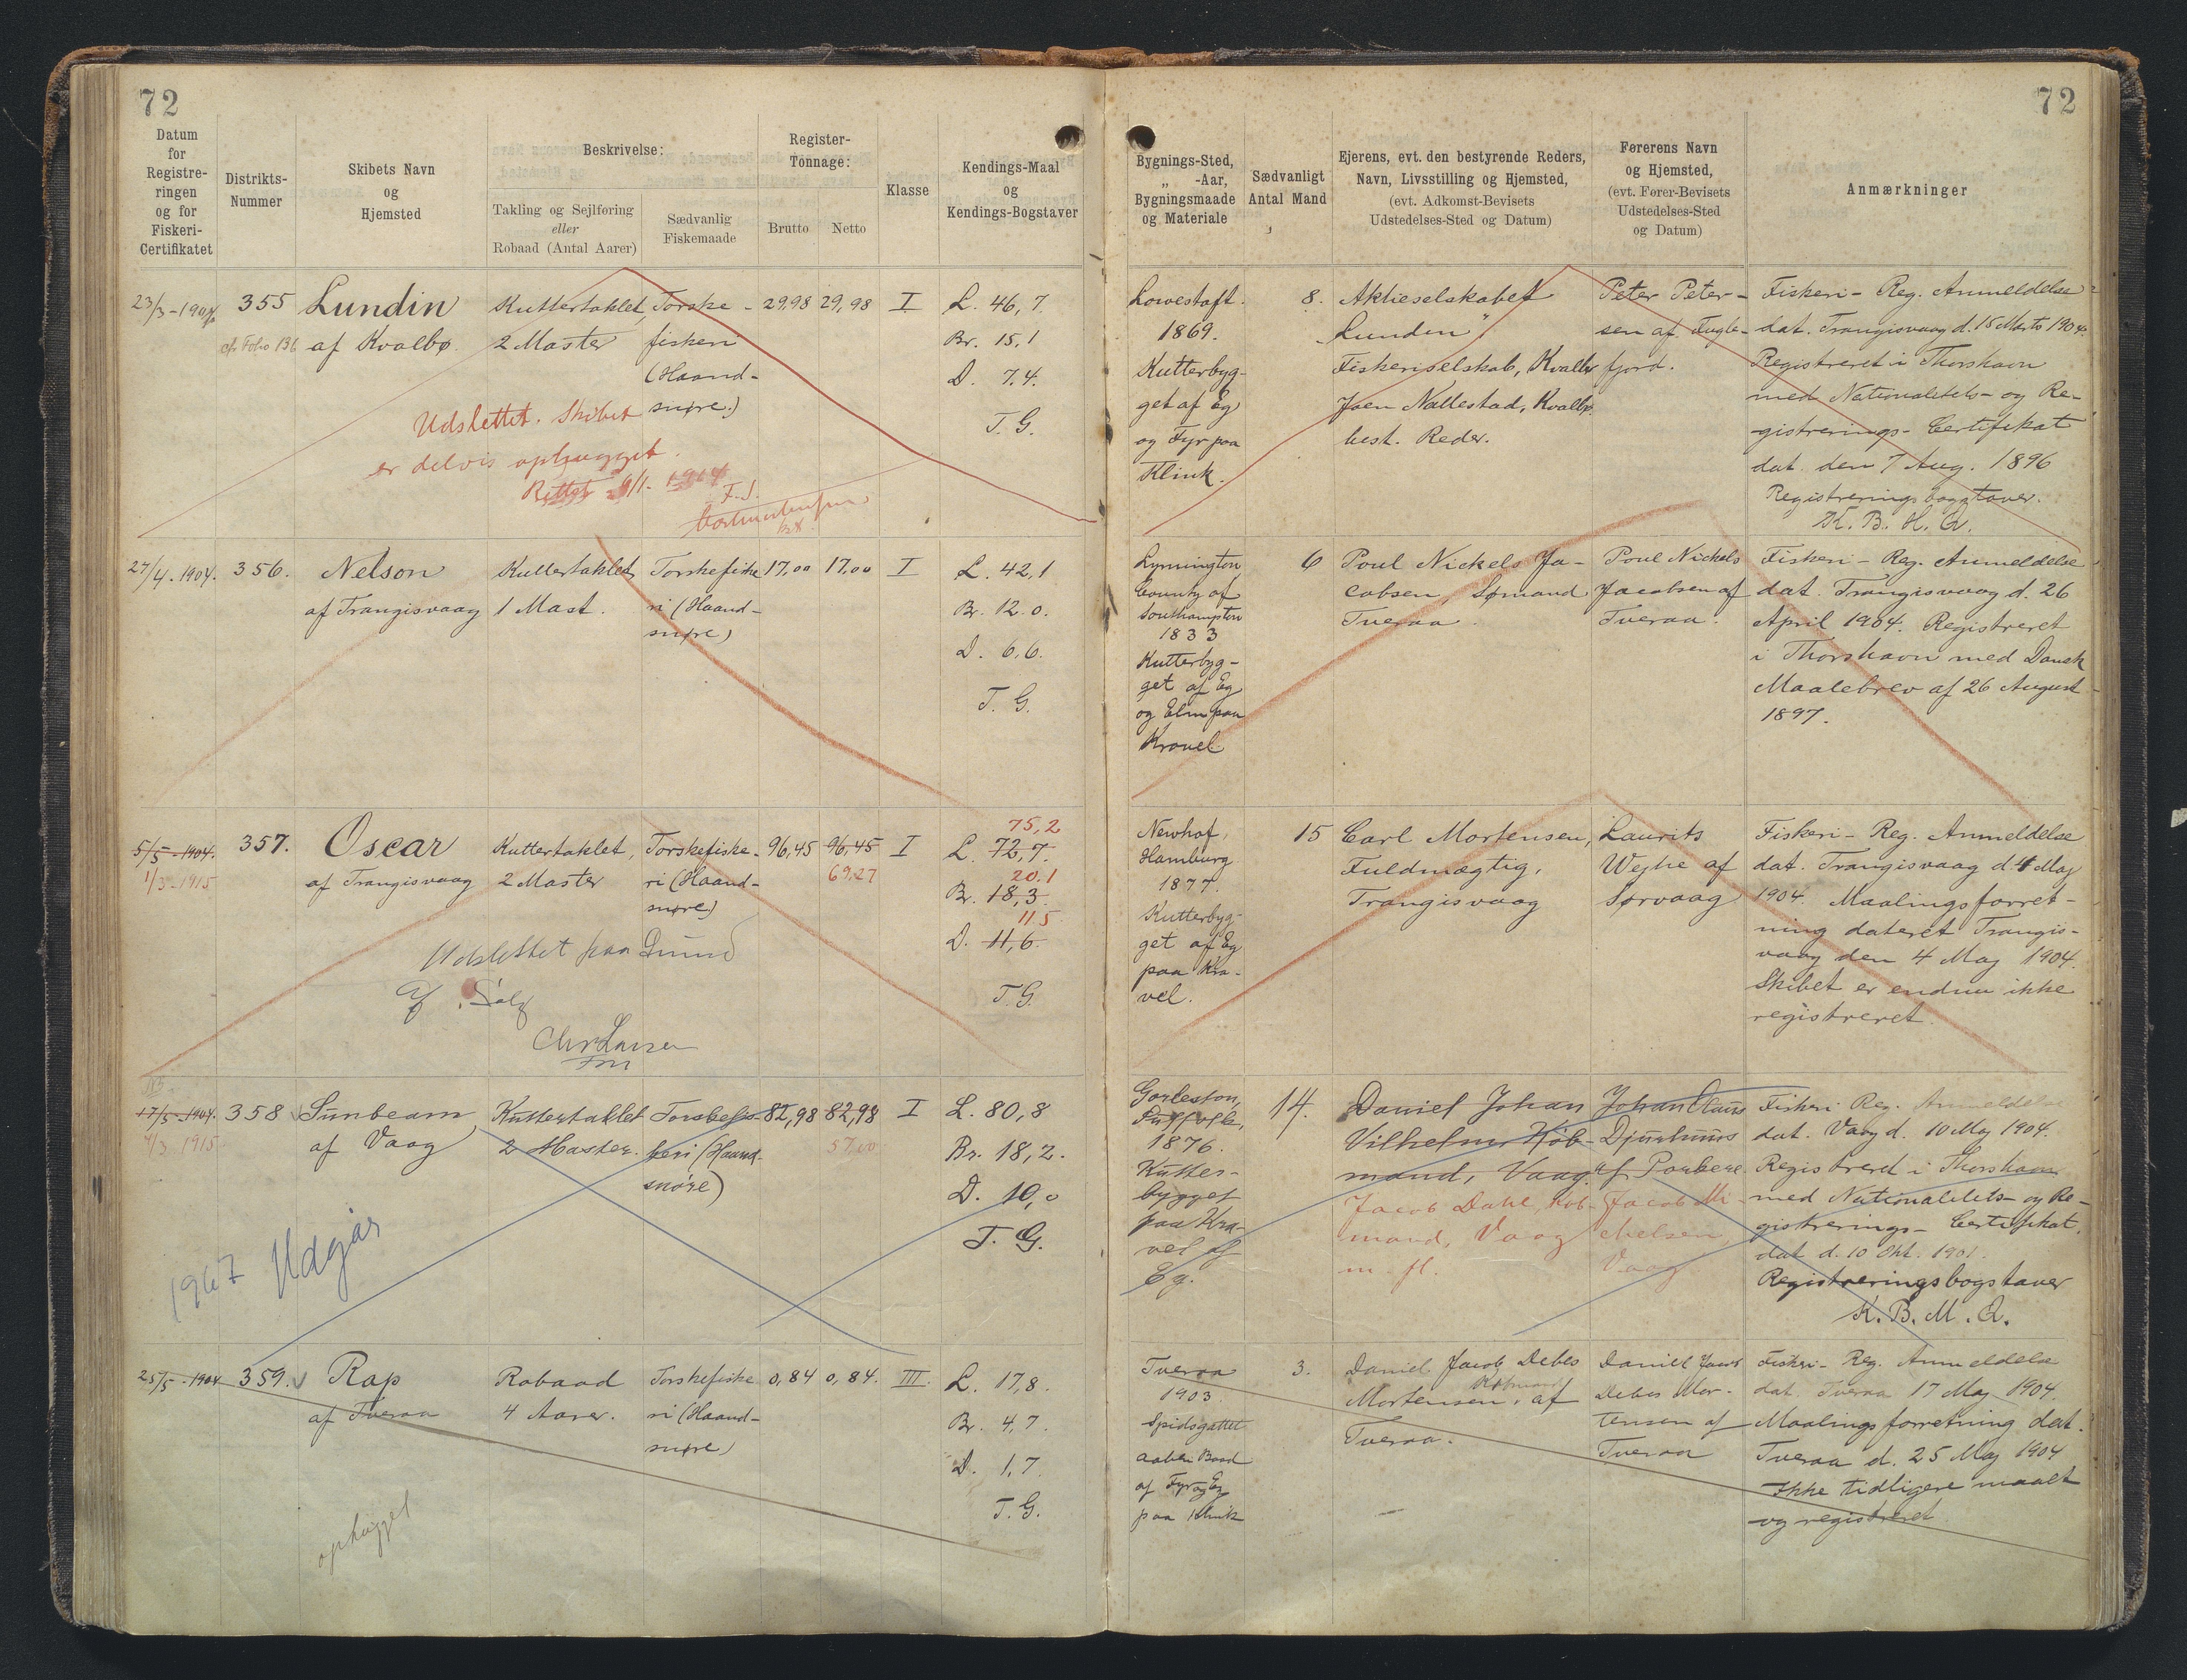 72
72
Datum
for
Registre-
ringen
og for
Fiskeri-
Certifikatet
Distrikts-
Nummer
Skibets Navn
og
Hjemsted
Beskrivelse:
Takling og Sejlføring
eller
Robaad (Antal Aarer)
Sædvanlig
Fiskemaade
Register-
Tonnage:
Brutto
Netto
Klasse
Kendings-Maal
og
Kendings-Bogstaver
Bygnings-Sted,
„ -Aar,
Bygningsmaade
og Materiale
Sædvanligt
Antal Mand
Ejerens, evt. den bestyrende Reders,
Navn, Livsstilling og Hjemsted,
(evt. Adkomst-Bevisets
Udstedelses-Sted og Datum)
Førerens Navn
og Hjemsted,
(evt. Fører-Bevisets
Udstedelses-Sted
og Datum)
Anmærkninger
23/3-1904
355
cfr Folio 136
Lundin
af Kvalbø.
Kuttertaklet,
2 Master
Torske-
fiskeri
(Haand-
snøre.)
29,98
29,98
I
L. 46,7.
Br. 15,1
D. 7,4.
T. G.
Udslettet. Skibet
er delvis ophugget.
Lowestoft.
1869.
Kutterbyg-
get af Eg
og Fyr paa
Klink.
8.
Aktieselskabet
„Lunden"
Fiskeriselskab, Kvalbø
Joen Nallestad, Kvalbø.
best. Reder.
Peter Peter-
sen af Fugle-
fjord.
Fiskeri- Reg. Anmeldelse
dat. Trangisvaag d. 15 Marts 1904.
Registreret i Thorshavn
med Nationalitets- og Re-
gistrerings- Certifikat
dat. den 7 Aug. 1896
Registreringsbogstaver.
K. B. H. Q.
27/4-1904.
356.
Nelson
af Trangisvaag
Kuttertaklet
1 Mast.
Torskefiske
ri (Haand-
snøre)
17,00
17,00
I
L. 42,1
Br. 12.0.
D. 6.6.
T. G.
Lymington
County of
Southampton
1833
Kutterbyg-
get af Eg
og Elm paa
Kravel
6
Poul Nickels Ja-
cobsen, Sømand
Tveraa.
Poul Nickels
Jacobsen af
Tveraa.
Fiskeri- Reg. Anmeldelse
dat. Trangisvaag d. 26
April 1904. Registreret
i Thorshavn med Dansk
Maalebrev af 26 August
1897.
5/5-1904.
1/3-1915
357.
Oscar
af Trangisvaag
Kuttertaklet,
2 Master
Torskefiske-
ri (Haand-
snøre)
96,45
96,45
69,27
I
75,2
L. 72,7.
20.1
Br. 18,3.
11 5
D. 11,6.
T. G.
Udslettet paa Grund
af Salg
Chr Larsen
Newhof,
Hamburg
1877.
Kutterbyg-
get af Eg
paa Kra-
vel.
15
Carl Mortensen,
Fuldmægtig,
Trangisvaag
Laurits
Wejhe af
Sørvaag
Fiskeri- Reg. Anmeldelse
dat. Trangisvaag d. 4 Maj
1904. Maalingsforret-
ning dateret Trangis-
vaag den 4 Maj 1904.
Skibet er endnu ikke
registreret.
17/5-1904.
4/3 1915
358
Sunbeam
af Vaag
Kuttertaklet
2 Master.
Torskefis-
keri (Haand-
snøre)
82,98
82,98
57,00
I
L. 80,8
Br. 18,2.
D. 10,0
T. G.
1967 Udgår
Gorleston,
Suffolk,
1876.
Kutter-
bygget
paa Kra-
vel af
Eg.
14.
Daniel Johan
Vilhelm Køb-
mand, Vaag.
Jacob Dahl, Køb-
mand, Vaag
m. fl.
Johan Claus
Djurhuus
af Porkere
Jacob Mi-
chelsen,
Vaag
Fiskeri Reg. Anmeldelse
dat. Vaag d. 10 Maj 1904.
Registreret i Thorshavn
med Nationalitets- og Re-
gistrerings- Certifikat,
dat d. 10 Okt. 1901.
Registreringsbogstaver
K. B. M. Q.
25/5-1904
359.
Rap
af Tveraa
Robaad
4 Aarer.
Torskefiske
ri (Haand-
snøre)
0,84
0,84.
III.
L. 17,8.
Br. 4,7.
D. 1,7.
T. G.
ophugget
Tveraa
1903
Spidsgattet
aaben Baad
af Fyr og Eg
paa Klink
3.
Daniel Jacob Debes
Købmand
Mortensen, af
Tveraa.
Daniel Jacob
Debes Mor-
tensen af
Tveraa
Fiskeri- Reg. Anmeldelse
dat. Tveraa 17 Maj 1904.
Maalingsforretning dat.
Tveraa d. 25 Maj 1904
Ikke tidligere maalt
og registreret